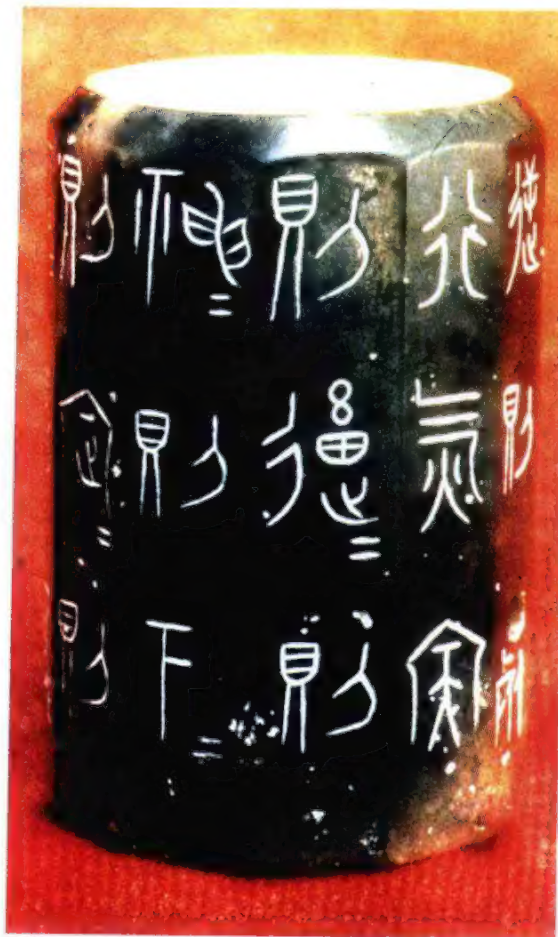 逆則死
行氣深
則蓄=則
神=則下=
則定=則